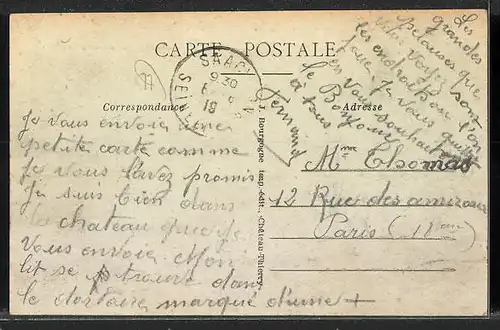 CARTE POSTALE
Correspondance
Adresse
SAAC
9 30
SEINE
J. Bourgogne imp. édit., Château-Thierry.
Je vous envoie une
petite carte comme
je vous l'avez promis
Je suis bien dans
le chateau que je
Vous envoie Mon
lit se trouve dans
le dortoire marqué d'une +
Les
grandes
pelouses que
vous voyez sont
les endroits ou l'on
joue. Je vous quitte
en vous souhaitant
le Bonjour
à tous.
Fernand
Mme Thomas
12 Rue des amiraux
Paris (18eme)